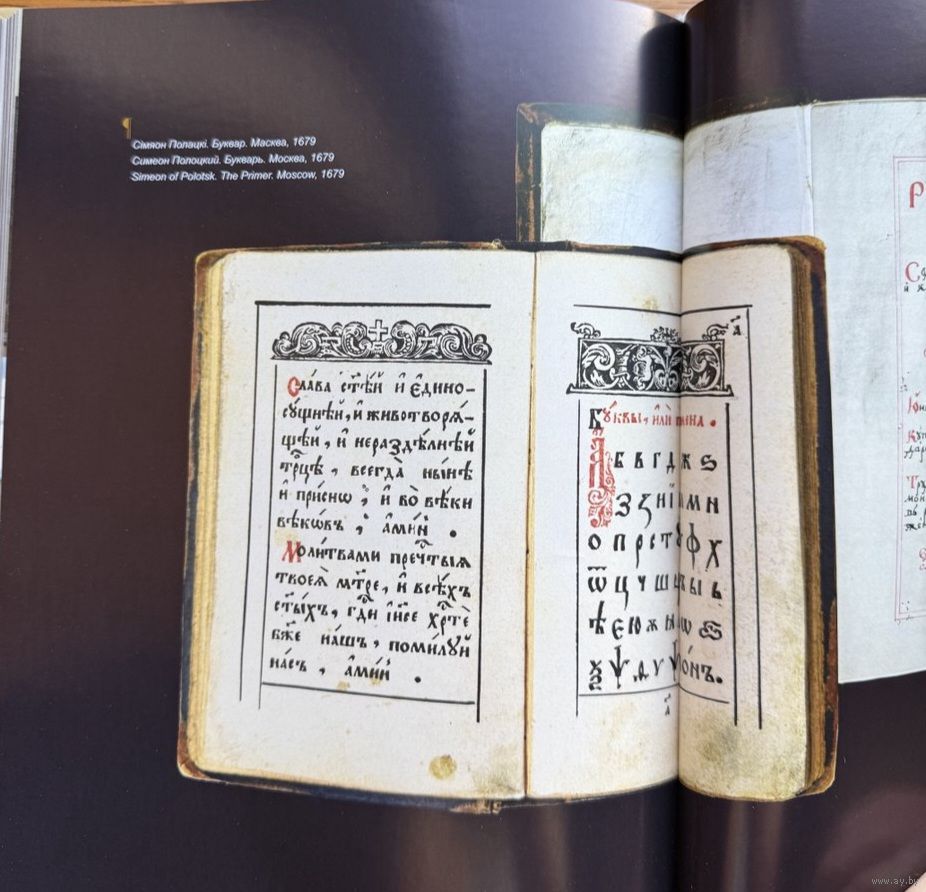 Сімяон Полацкі. Буквар. Масква, 1679
Симеон Полоцкий. Букварь. Москва, 1679
Simeon of Polotsk. The Primer. Moscow, 1679
Сла́ва ст҃ѣ́й и҆ є҆дино-
сꙋ́щнѣй, и҆ животворѧ́-
щей, и҆ нераздѣ́лнѣй
трⷪ҇цѣ, всегда̀ ны́нѣ
и҆ при́снѡ, и҆ во̀ вѣ́ки
вѣкѡ́въ, а҆ми́нь.
Моли́твами пречⷭ҇тыѧ
твоеѧ̀ мт҃ре, и҆ всѣ́хъ
ст҃ы́хъ, гдⷭ҇и і҆и҃се хрⷭ҇тѐ
бж҃е на́шъ, поми́лꙋй
на́съ, а҆ми́нь.
а҃
Бꙋ́квы, и҆лѝ
А Б В Г Д Ж Ѕ
З И М Н
О П Р С Т Ф Х
Ѿ Ц Ч Ш Ы Ь
Ѣ Є Ю Ж Ѡ
Ѯ Ѱ
а҃
www.ay.by